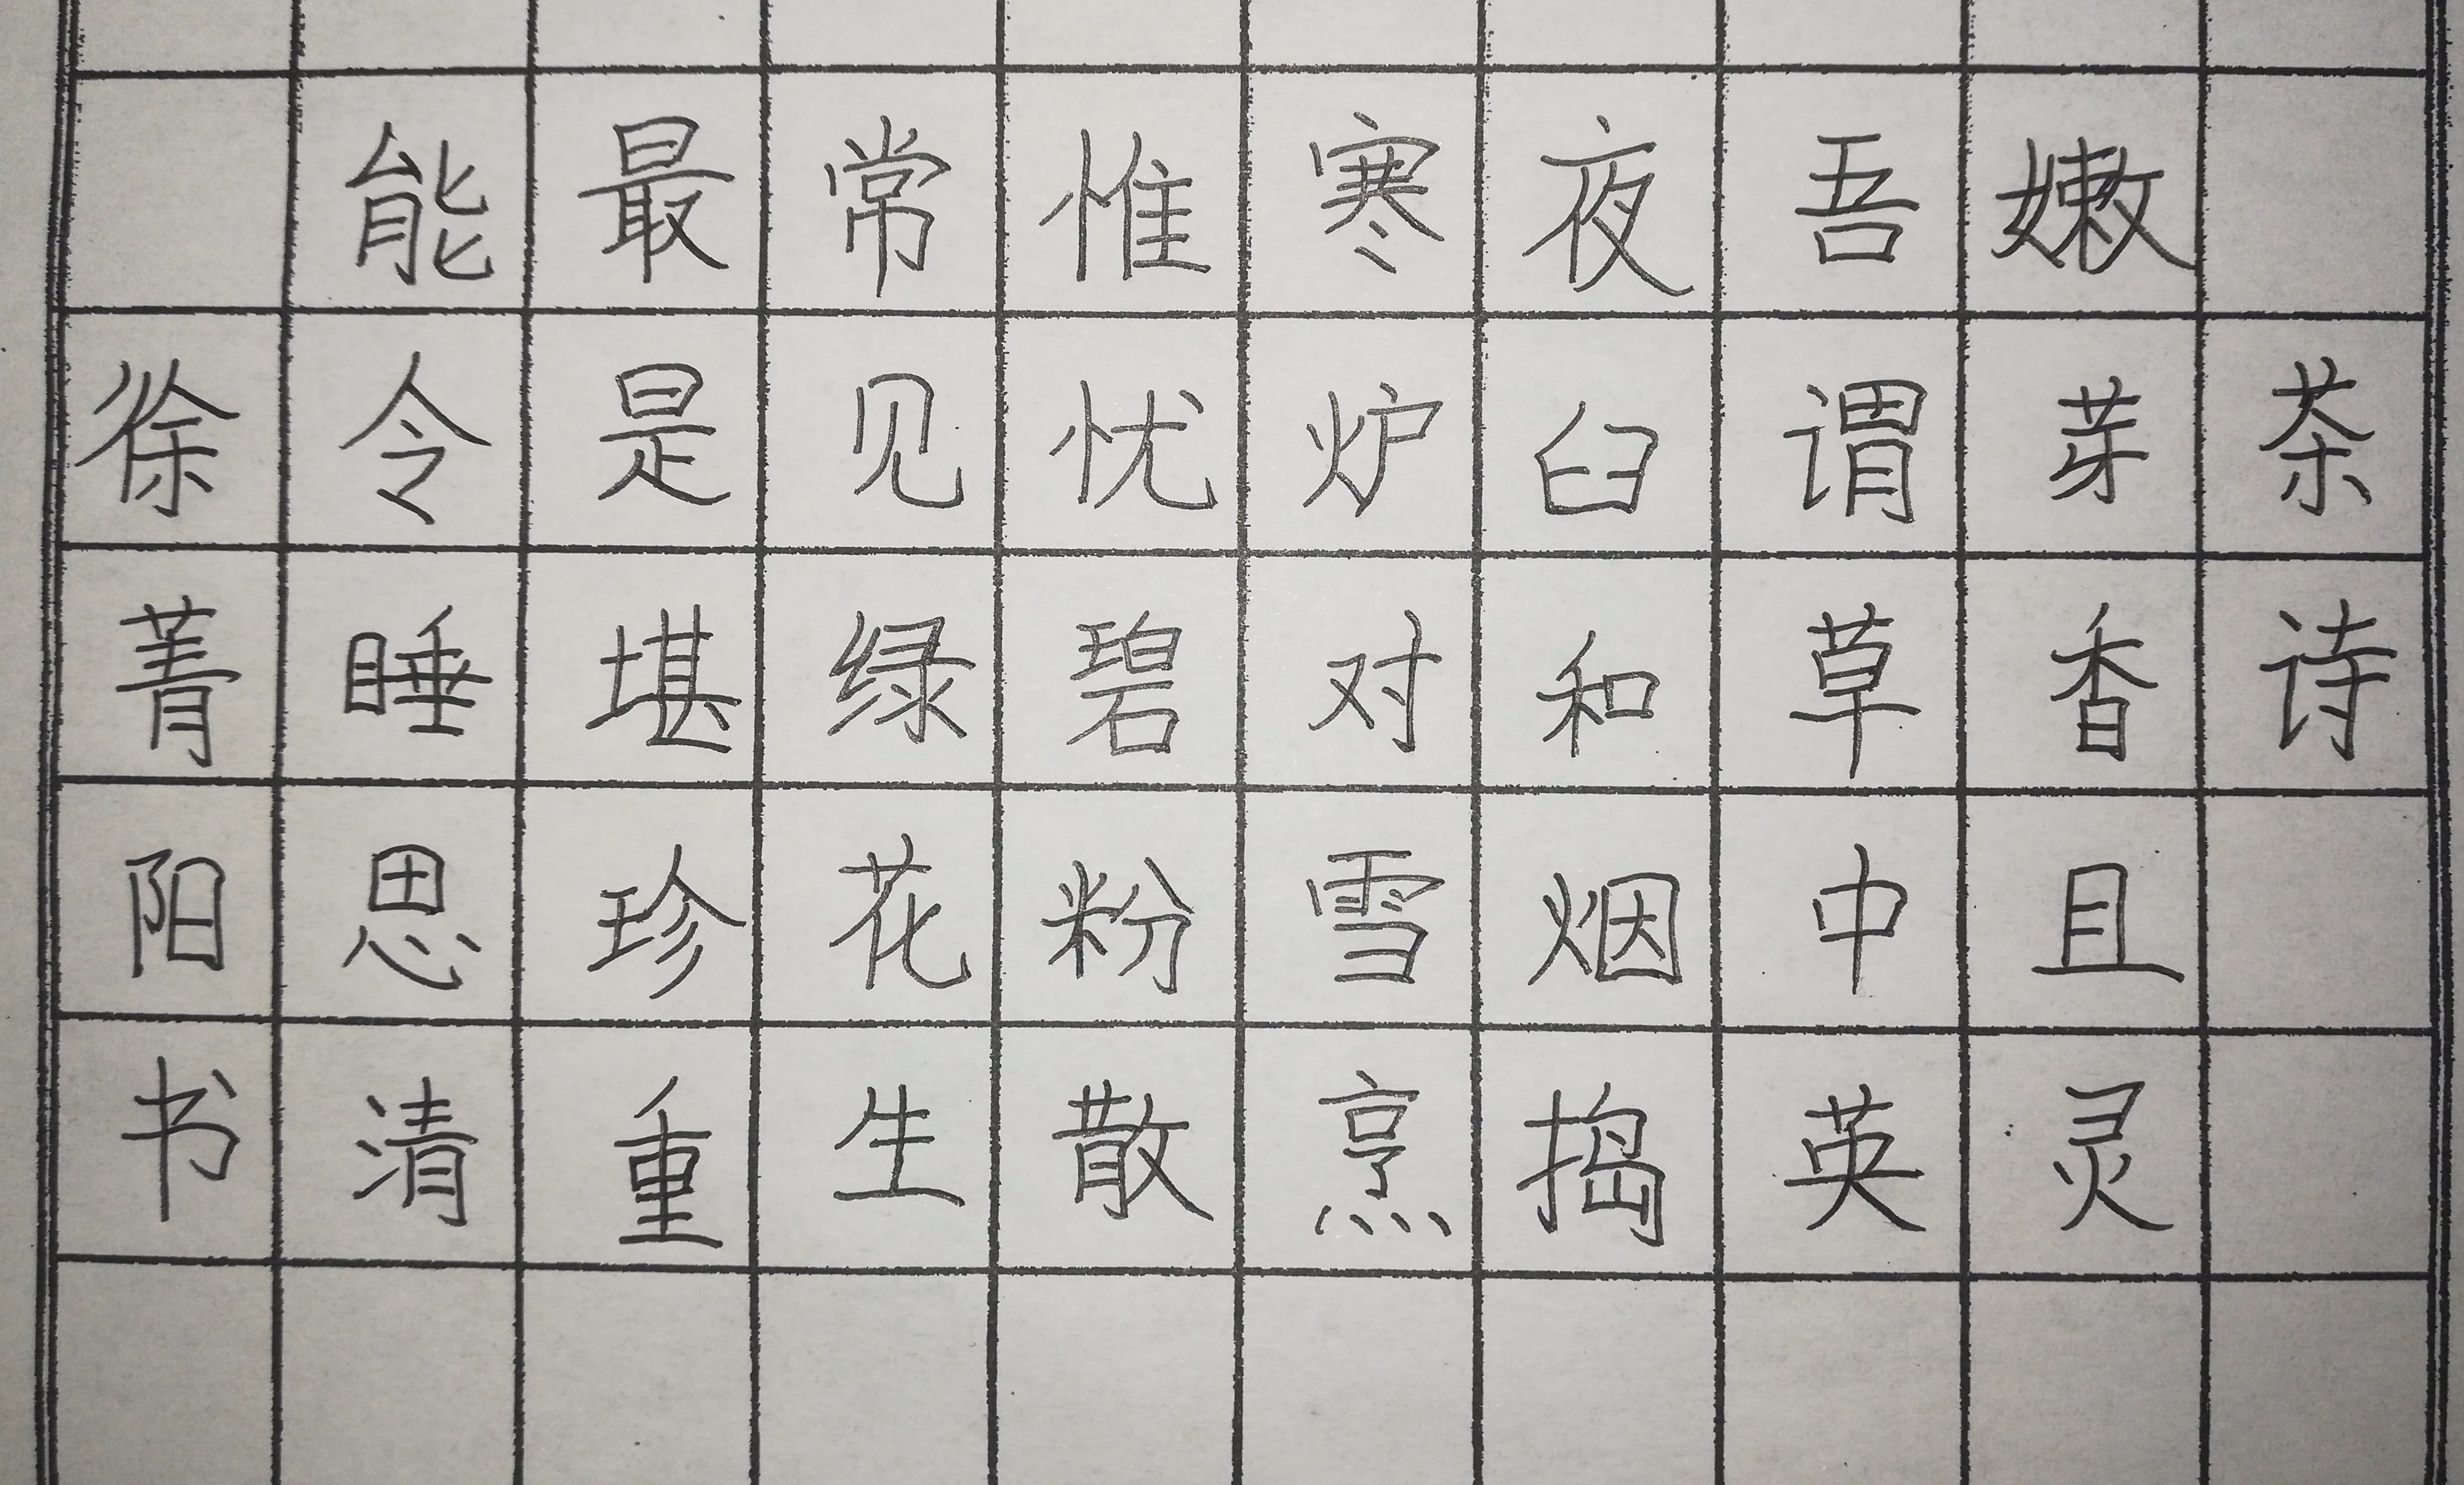 茶诗
嫩芽香且灵
吾谓草中英
夜臼和烟捣
寒炉对雪烹
惟忧碧粉散
常见绿花生
最是堪珍重
能令睡思清
徐菁阳书